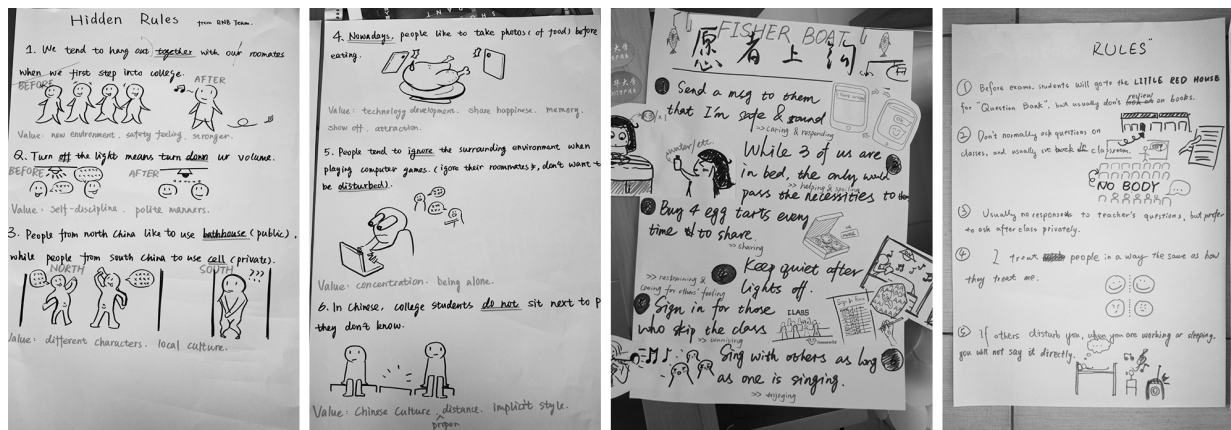 Hidden Rules from BNB Team.
1. We tend to hang out together with our roomates
when we first step into college.
BEFORE
AFTER
Value: new environment. safety feeling. stronger.
2. Turn off the light means turn down ur volume.
BEFORE
AFTER
Value: self-discipline. polite manners.
3. People from north China like to use bathhouse (public),
while people from south China to use cell (private).
NORTH
SOUTH
Value: different characters. local culture.
4. Nowadays, people like to take photos (of food) before
eating.
Value: technology development. share happiness. memory.
show off. attraction.
5. People tend to ignore the surrounding environment when
playing computer games. (igore their roommates, don't want t
be disturbed).
Value: concentration. being alone.
6. In Chinese, college students do not sit next to p
they don't know.
Value: Chinese Culture. distance. Implicit style.
proper
FISHER BOAT
愿者上钩
Send a msg to them
that I'm safe & sound
>> caring & responding
water/etc.
While 3 of us are
in bed, the only would
pass the necessities to them
>> helping &
Buy 4 egg tarts every
time to share
>> sharing
Keep quiet after
lights off.
>> restraining &
caring for others' feeling
Sign in for those
who skip the class
CLASS
Sing with others as long
as one is singing.
>> enjoying
RULES"
① Before exams, students will go to the LITTLE RED HOUSE
for "Question Bank", but usually don't review on books.
② Don't normally ask questions on
classes, and usually sit back in classroom.
NO BODY
③ Usually no responses to teacher's questions, but prefer
to ask after class privately.
④ I treat people in a way the same as how
they treat me.
⑤ If others disturb you, when you are working or sleeping,
you will not say it directly.